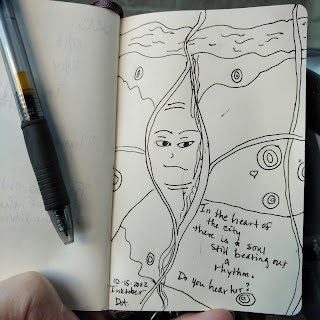 In the heart of
the city
there is a soul
still beating out
a
rhythm.
Do you hear her?
10-15-2022
Inktober
Dot.